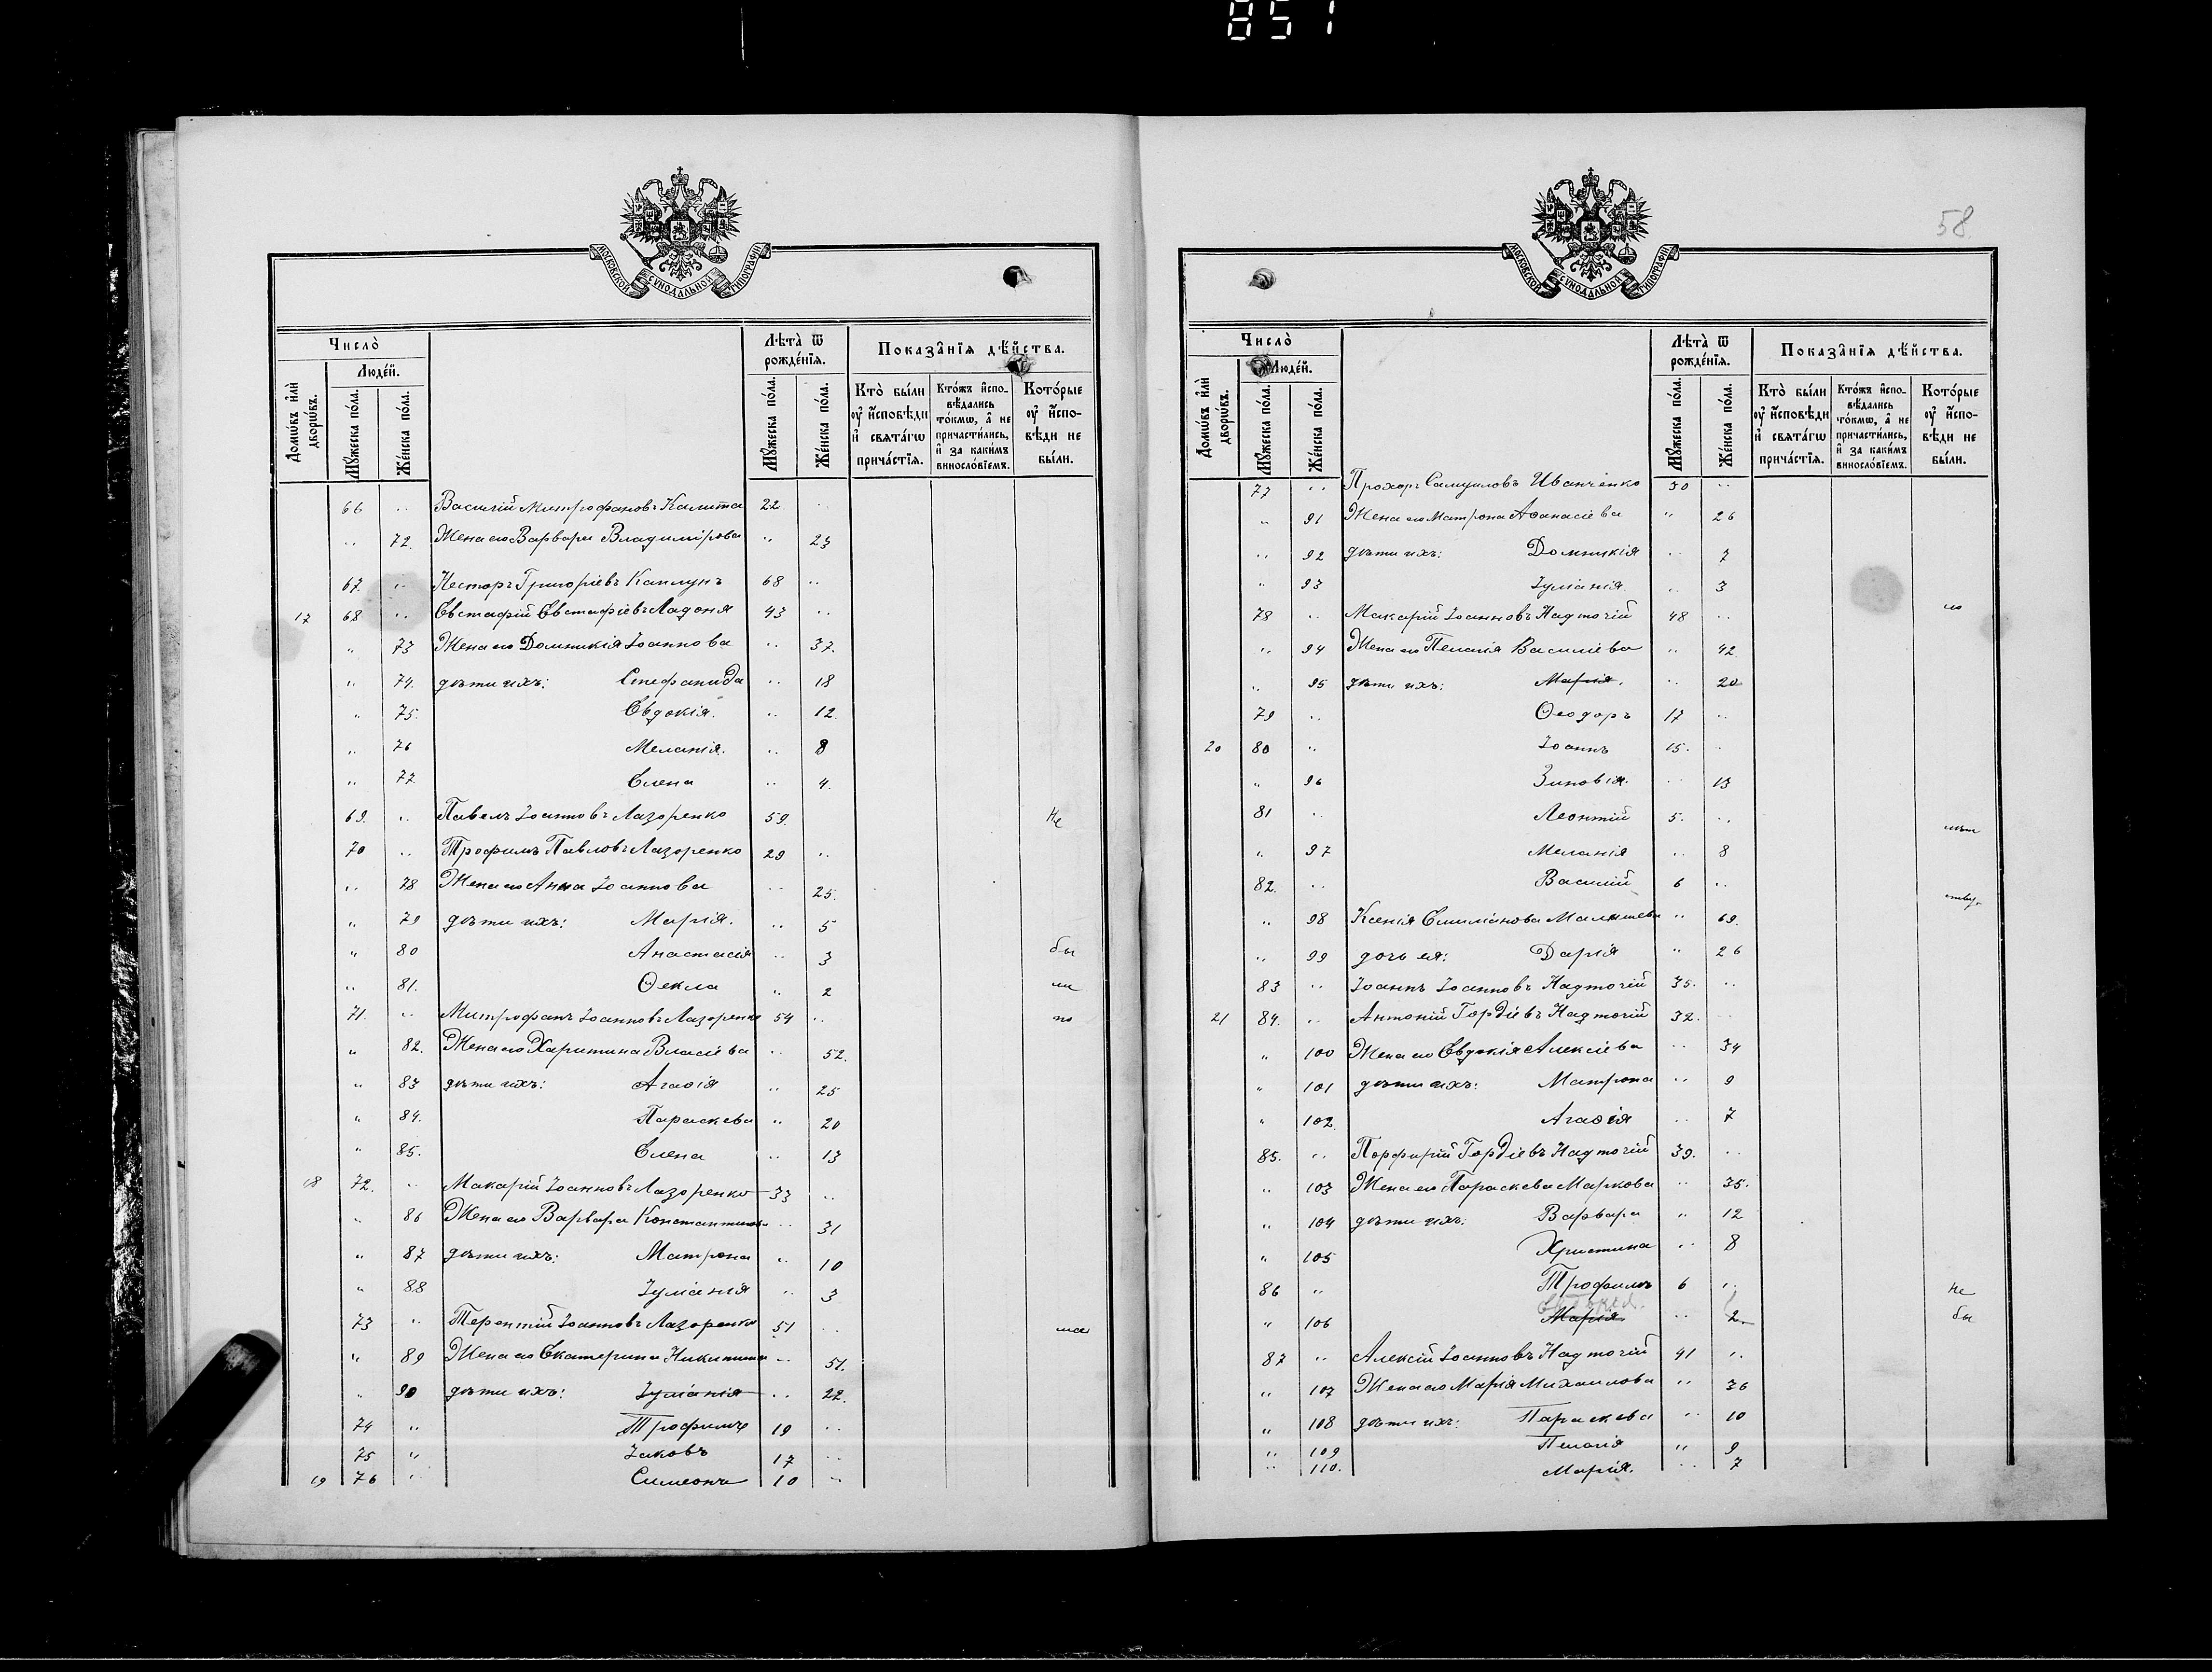 851
МОСКОВСКОЙ СѴНОДАЛЬНОЙ ТИПОГРАФІИ
Число̀
Лѣта̀ ѿ рожде́нїя.
Показа̑нїя дѣ́йства.
Домѡ́въ и҆лѝ дворѡ́въ.
Люде́й.
Мꙋ́жеска по́ла.
Же́нска по́ла.
Мꙋ́жеска по́ла.
Же́нска по́ла.
Кто̀ бы́ли ᲂу҆ и҆́сповѣди и҆ свѧта́гѡ прича́стїѧ.
Кто́жъ и҆спо-вѣ́дались то́кмѡ, а҆ не причасти́лись, и҆ за каки́мъ винослові́емъ.
Кото́рые ᲂу҆ и҆́спо-вѣди не бы́ли.
66 " Василій Митрофановъ Калита 22 "
" 72. Жена его Варвара Владимірова " 23
67. " Несторъ Григоріевъ Каплунъ 68 "
17 68 " Евстафій Евстафіевъ Ладоня 43 "
" 73 Жена его Домникія Іоаннова " 37.
" 74. дѣти ихъ: Стефанида " 18
" 75. Евдокія. " 12.
" 76 Меланія. " 8
" 77 Елена " 4.
69. " Павелъ Іоанновъ Лазоренко 59. Не
70 " Трофимъ Павловъ Лазоренко 29 "
" 78 Жена его Анна Іоаннова " 25.
" 79 дѣти ихъ: Марія. " 5
" 80 Анастасія " 3 бы
" 81. Ѳекла " 2 ли
71. " Митрофанъ Іоанновъ Лазоренко 54 " по
" 82. Жена его Харитина Власіева " 52.
" 83 дѣти ихъ: Агаѳія " 25
" 84. Параскева " 20
" 85. Елена " 13
18 72. " Макарій Іоанновъ Лазоренко 33 "
" 86 Жена его Варвара Константинова " 31
" 87 дѣти ихъ: Матрона " 10
" 88 Іуліанія " 3
73 " Терентій Іоанновъ Лазоренко 51 "
" 89 Жена его Екатерина Никитина " 51.
" 90 дѣти ихъ: Іуліанія " 22.
74 " Трофимъ 19 "
75 " Іаковъ 17 "
19 76 " Симеонъ 10 "
58.
МОСКОВСКОЙ СѴНОДАЛЬНОЙ ТИПОГРАФІИ
Число̀
Лѣта̀ ѿ рожде́нїя.
Показа̑нїя дѣ́йства.
Домѡ́въ и҆лѝ дворѡ́въ.
Люде́й.
Мꙋ́жеска по́ла.
Же́нска по́ла.
Мꙋ́жеска по́ла.
Же́нска по́ла.
Кто̀ бы́ли ᲂу҆ и҆́сповѣди и҆ свѧта́гѡ прича́стїѧ.
Кто́жъ и҆спо-вѣ́дались то́кмѡ, а҆ не причасти́лись, и҆ за каки́мъ винослові́емъ.
Кото́рые ᲂу҆ и҆́спо-вѣди не бы́ли.
77 " Прохоръ Самуиловъ Иванченко 30 "
" 91 Жена его Матрона Аѳанасіева " 26
" 92 дѣти ихъ: Домникія " 7
" 93 Іуліанія. " 3
78 " Макарій Іоанновъ Надточій 48 "
" 94 Жена его Пелагія Василіева " 42
" 95 дѣти ихъ: Марія. " 20
79 " Ѳеодоръ 17 "
20 80 " Іоаннъ 15. "
" 96 Зиновія. " 13
81 " Леонтій 5. "
" 97 Меланія " 8
82. " Василій 6 "
" 98 Ксенія Емиліанова Малышева " 69.
" 99 дочь ея: Дарія " 26
83 " Іоаннъ Іоанновъ Надточій 35. "
21 84. " Антоній Гордіевъ Надточій 32. "
" 100 Жена его Евдокія Алексіева " 34
" 101 дѣти ихъ: Матрона " 9
" 102. Агаѳія " 7
85. " Порфирій Гордіевъ Надточій 39. "
" 103 Жена его Параскева Маркова " 35.
" 104 дѣти ихъ: Варвара " 12
" 105 Христина " 8
86 " Трофимъ 6 " не
Евдокія.
" 106 Марія. " 2 бы
87 " Алексій Іоанновъ Надточій 41 "
" 107 Жена его Марія Михаилова " 36
" 108 дѣти ихъ: Параскева " 10
" 109 Пелагія " 9
" 110. Марія. " 7